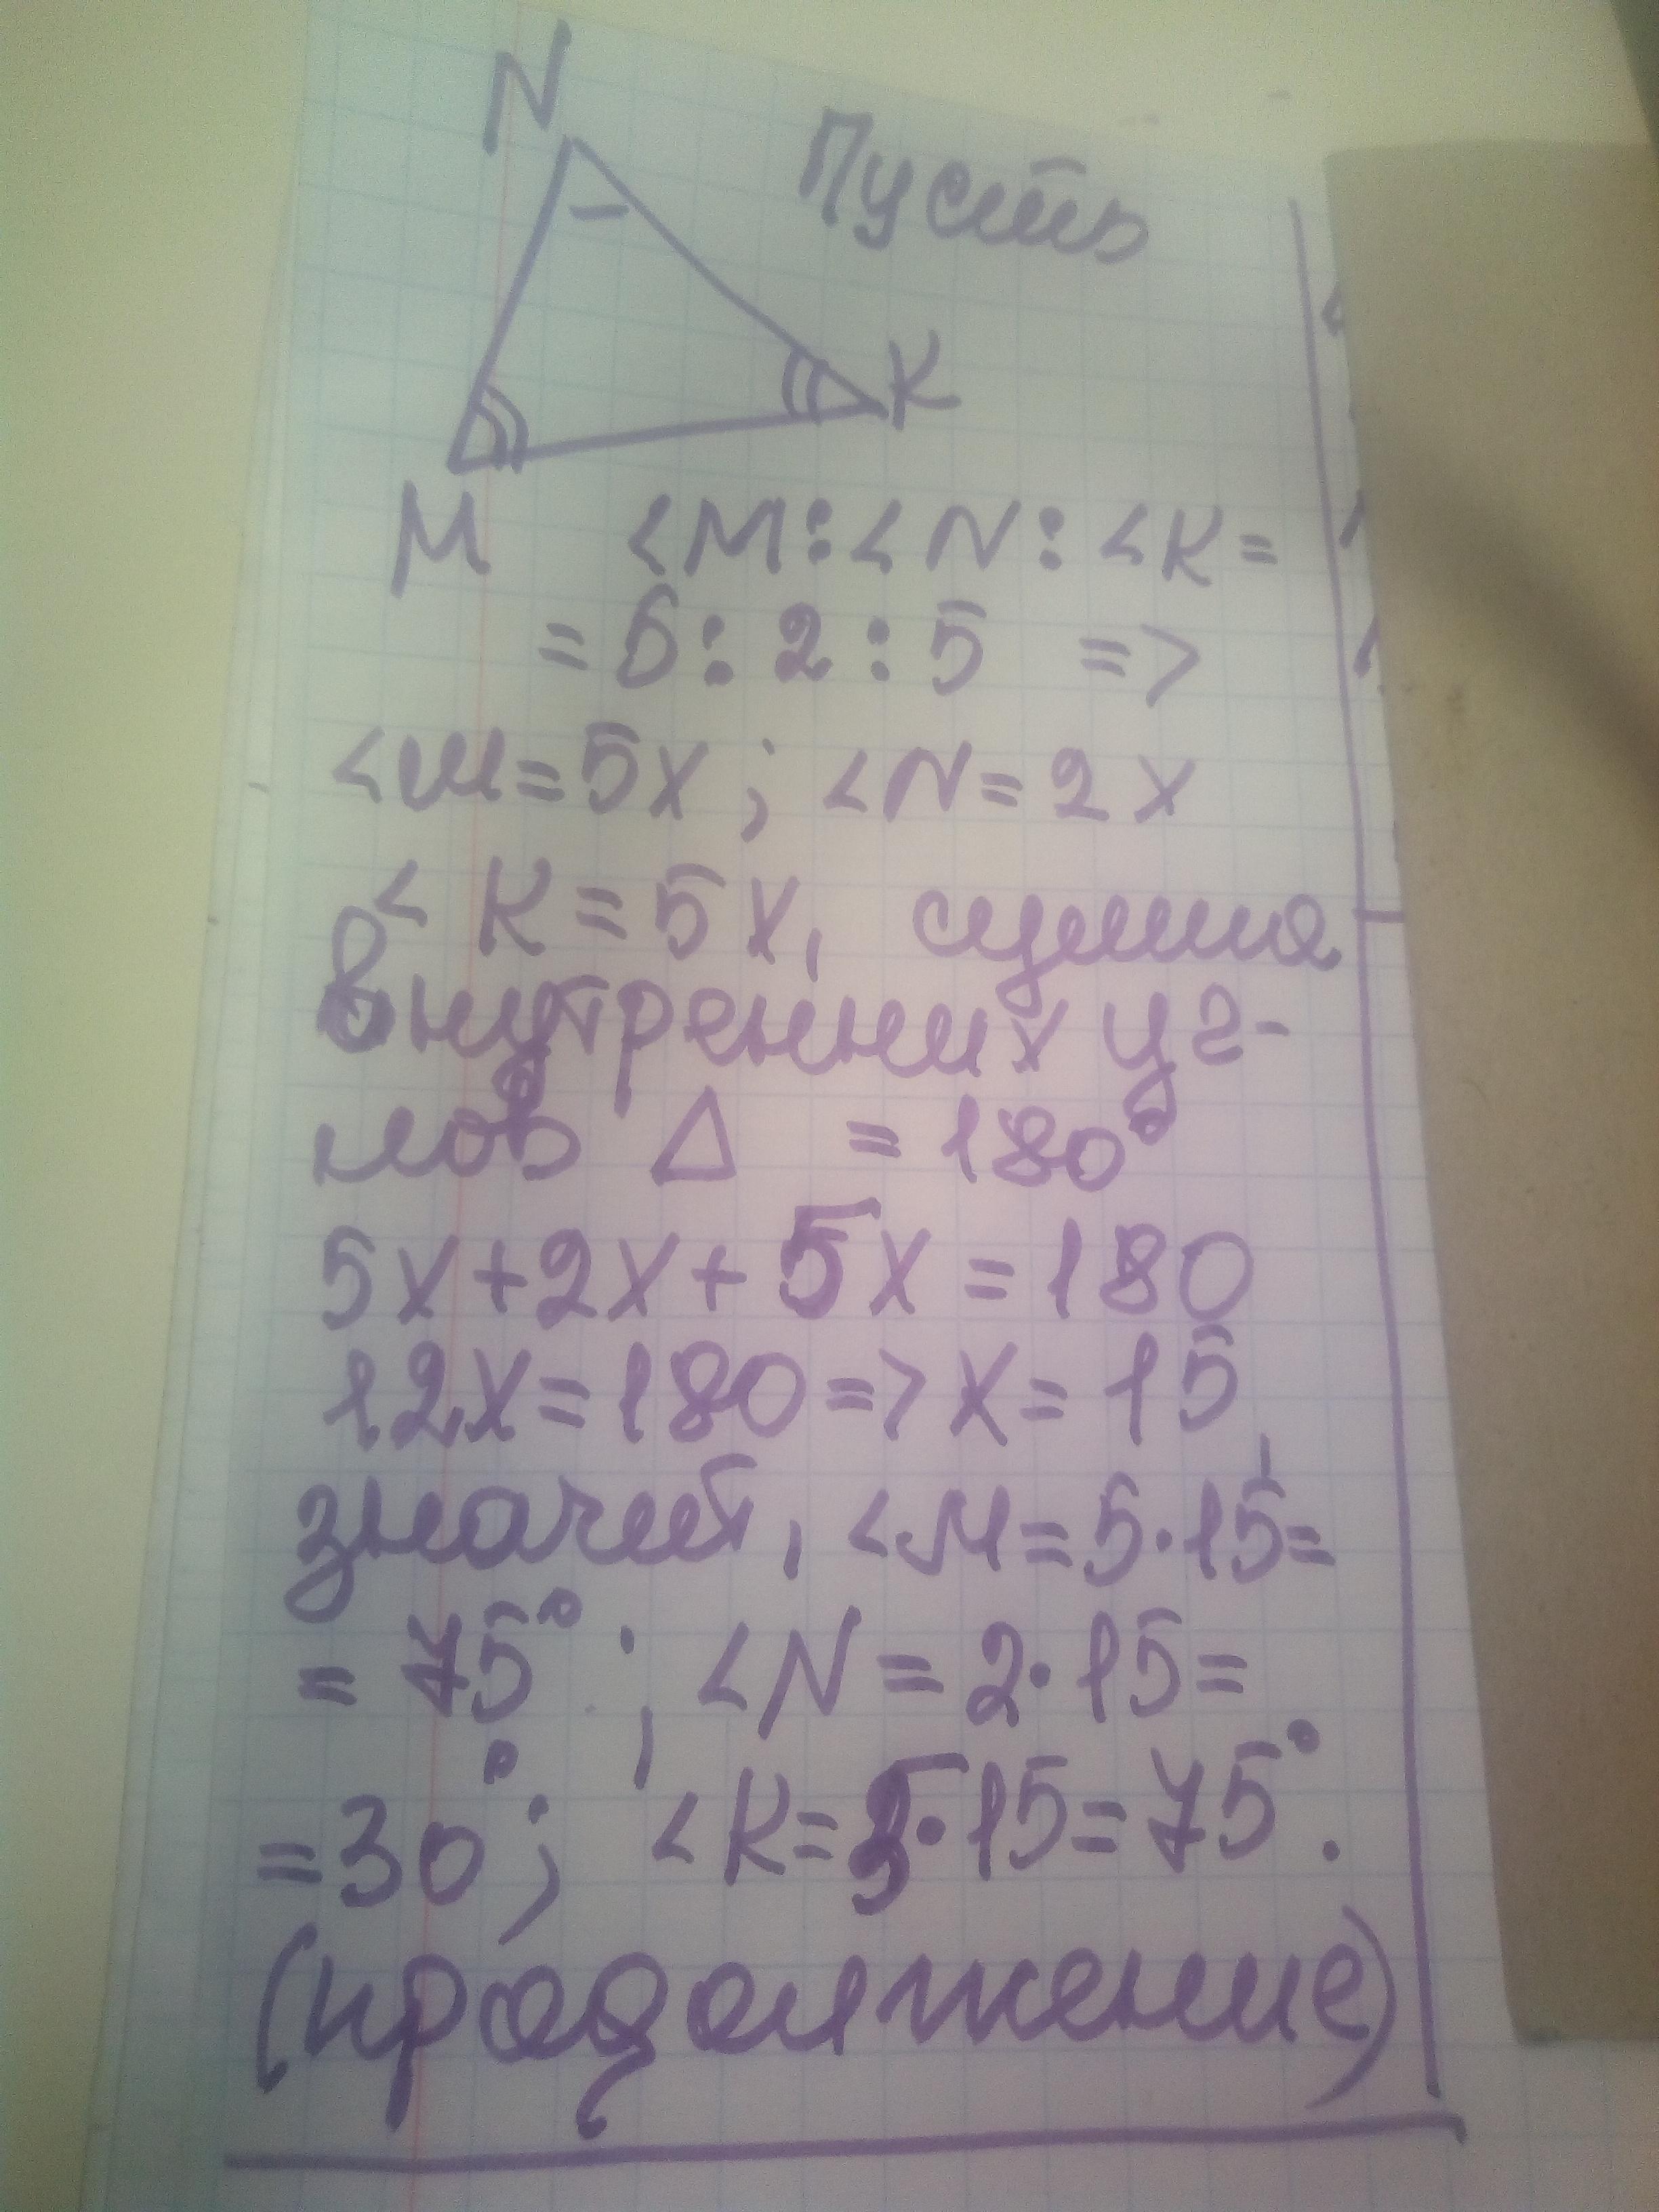 N
Пусть
K
M
<M:<N:<K=
=5:2:5 =>
<M=5x; <N=2x
<K=5x, сумма
внутренних уг-
лов Δ =180°
5x+2x+5x=180
12x=180=>x=15,
значит, <M=5·15=
=75°; <N=2·15=
=30°; <K=5·15=75°.
(продолжение)